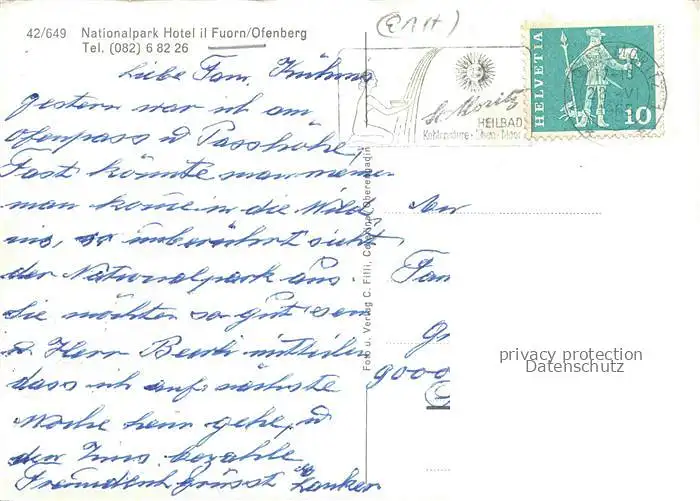 42/649 Nationalpark Hotel il Fuorn/Ofenberg
Tel. (082) 6 82 26
(EAH)
St. Moritz
HEILBAD
HELVETIA
10
Liebe Fam. Kühnis
gestern war ich am
Ofenpass u Passhöhe,
Fast könnte man meinen
man komme in die Wild
nis, so unberührt sieht
der Nationalpark aus.
Sie möchten so gut sein
u Herr Beerli mitteilen
dass ich anfs nächste
Woche heim gehe, u
den Zins bezahle
Freundlich grüsst
Zanker
Foto u. Verlag C. Filli, Celerina/Oberengadin
An
Fam
9000
privacy protection
Datenschutz